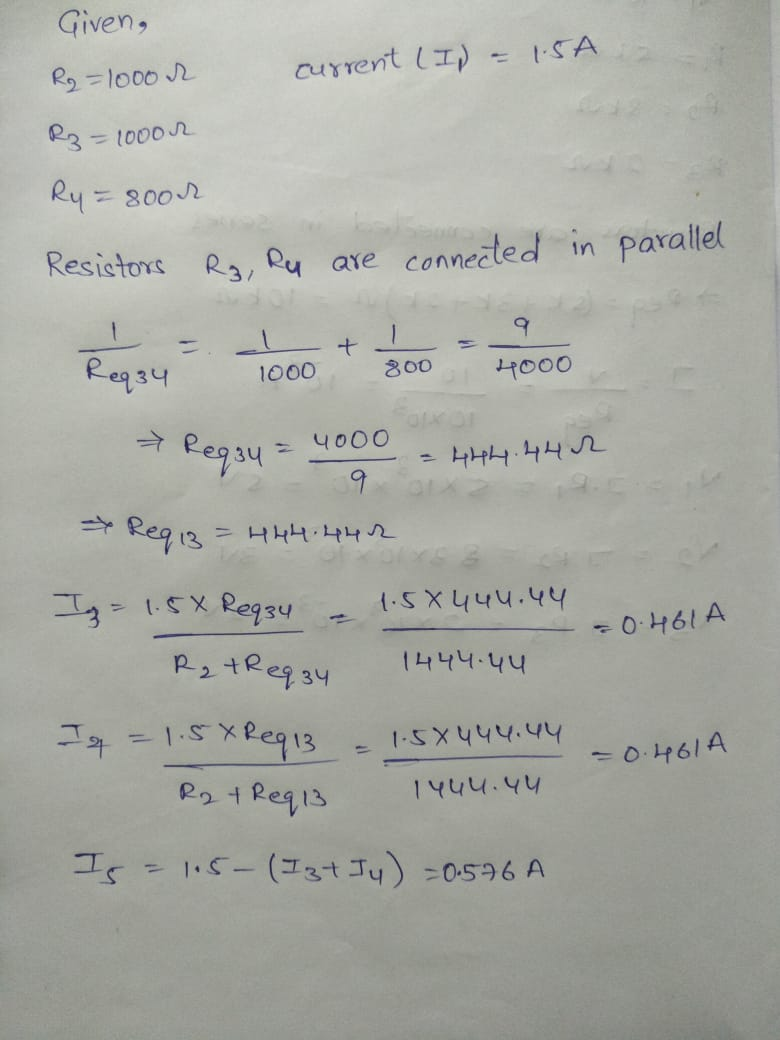 Given,
R2 = 1000 Ω current (I1) = 1.5A
R3 = 1000 Ω
R4 = 800 Ω
Resistors R3, R4 are connected in parallel
1/Req34 = 1/1000 + 1/800 = 9/4000
⇒ Req34 = 4000/9 = 444.44 Ω
⇒ Req13 = 444.44 Ω
I3 = 1.5 X Req34 / R2 + Req34 = 1.5 X 444.44 / 1444.44 = 0.461 A
I4 = 1.5 X Req13 / R2 + Req13 = 1.5 X 444.44 / 1444.44 = 0.461 A
I5 = 1.5 - (I3 + I4) = 0.576 A